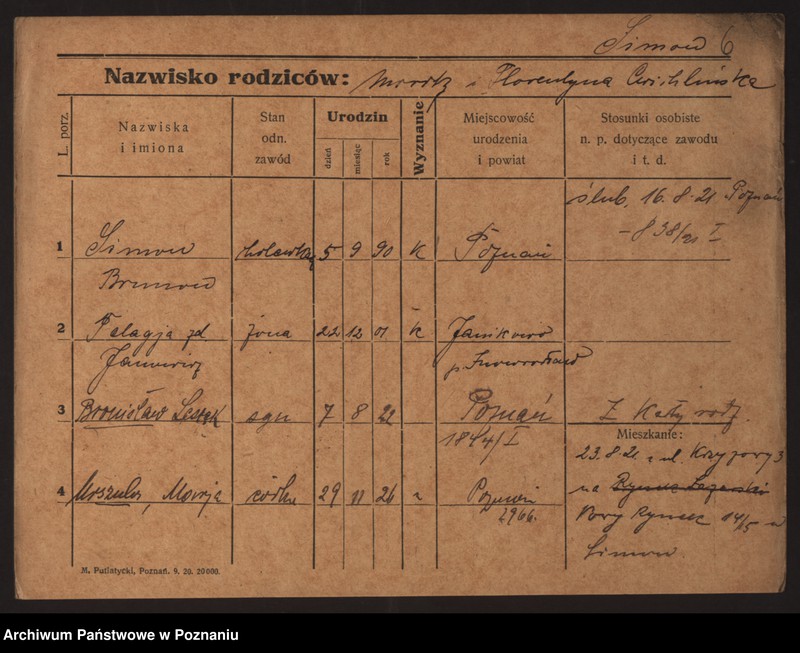 Simon 6
Nazwisko rodziców: Moritz i Florentyna Cwichlińska
L. porz.
Nazwiska i imiona
Stan odn. zawód
Urodzin
dzień
miesiąc
rok
Wyznanie
Miejscowość urodzenia i powiat
Stosunki osobiste n. p. dotyczące zawodu i t. d.
ślub, 16. 8. 21 Poznań
838/21 I
1 Simon 5 9 90 K Poznań
Brunon
2 Pelagja zd żona 22 12 01 K Janikowo
Janowicz p. Inowrocław
3 Bronisław Leszek syn 7 8 22 Poznań Z Karty rodz.
1844/I
Mieszkanie:
23.8.21 z ul. Krzyżowy 3
4 Urszula, Marja córka 29 11 26 Poznań na Rynek Łazarski
2966.
Rynek 14/15 u
Simon
M. Putiatycki, Poznań. 9. 20. 20000.
Archiwum Państwowe w Poznaniu